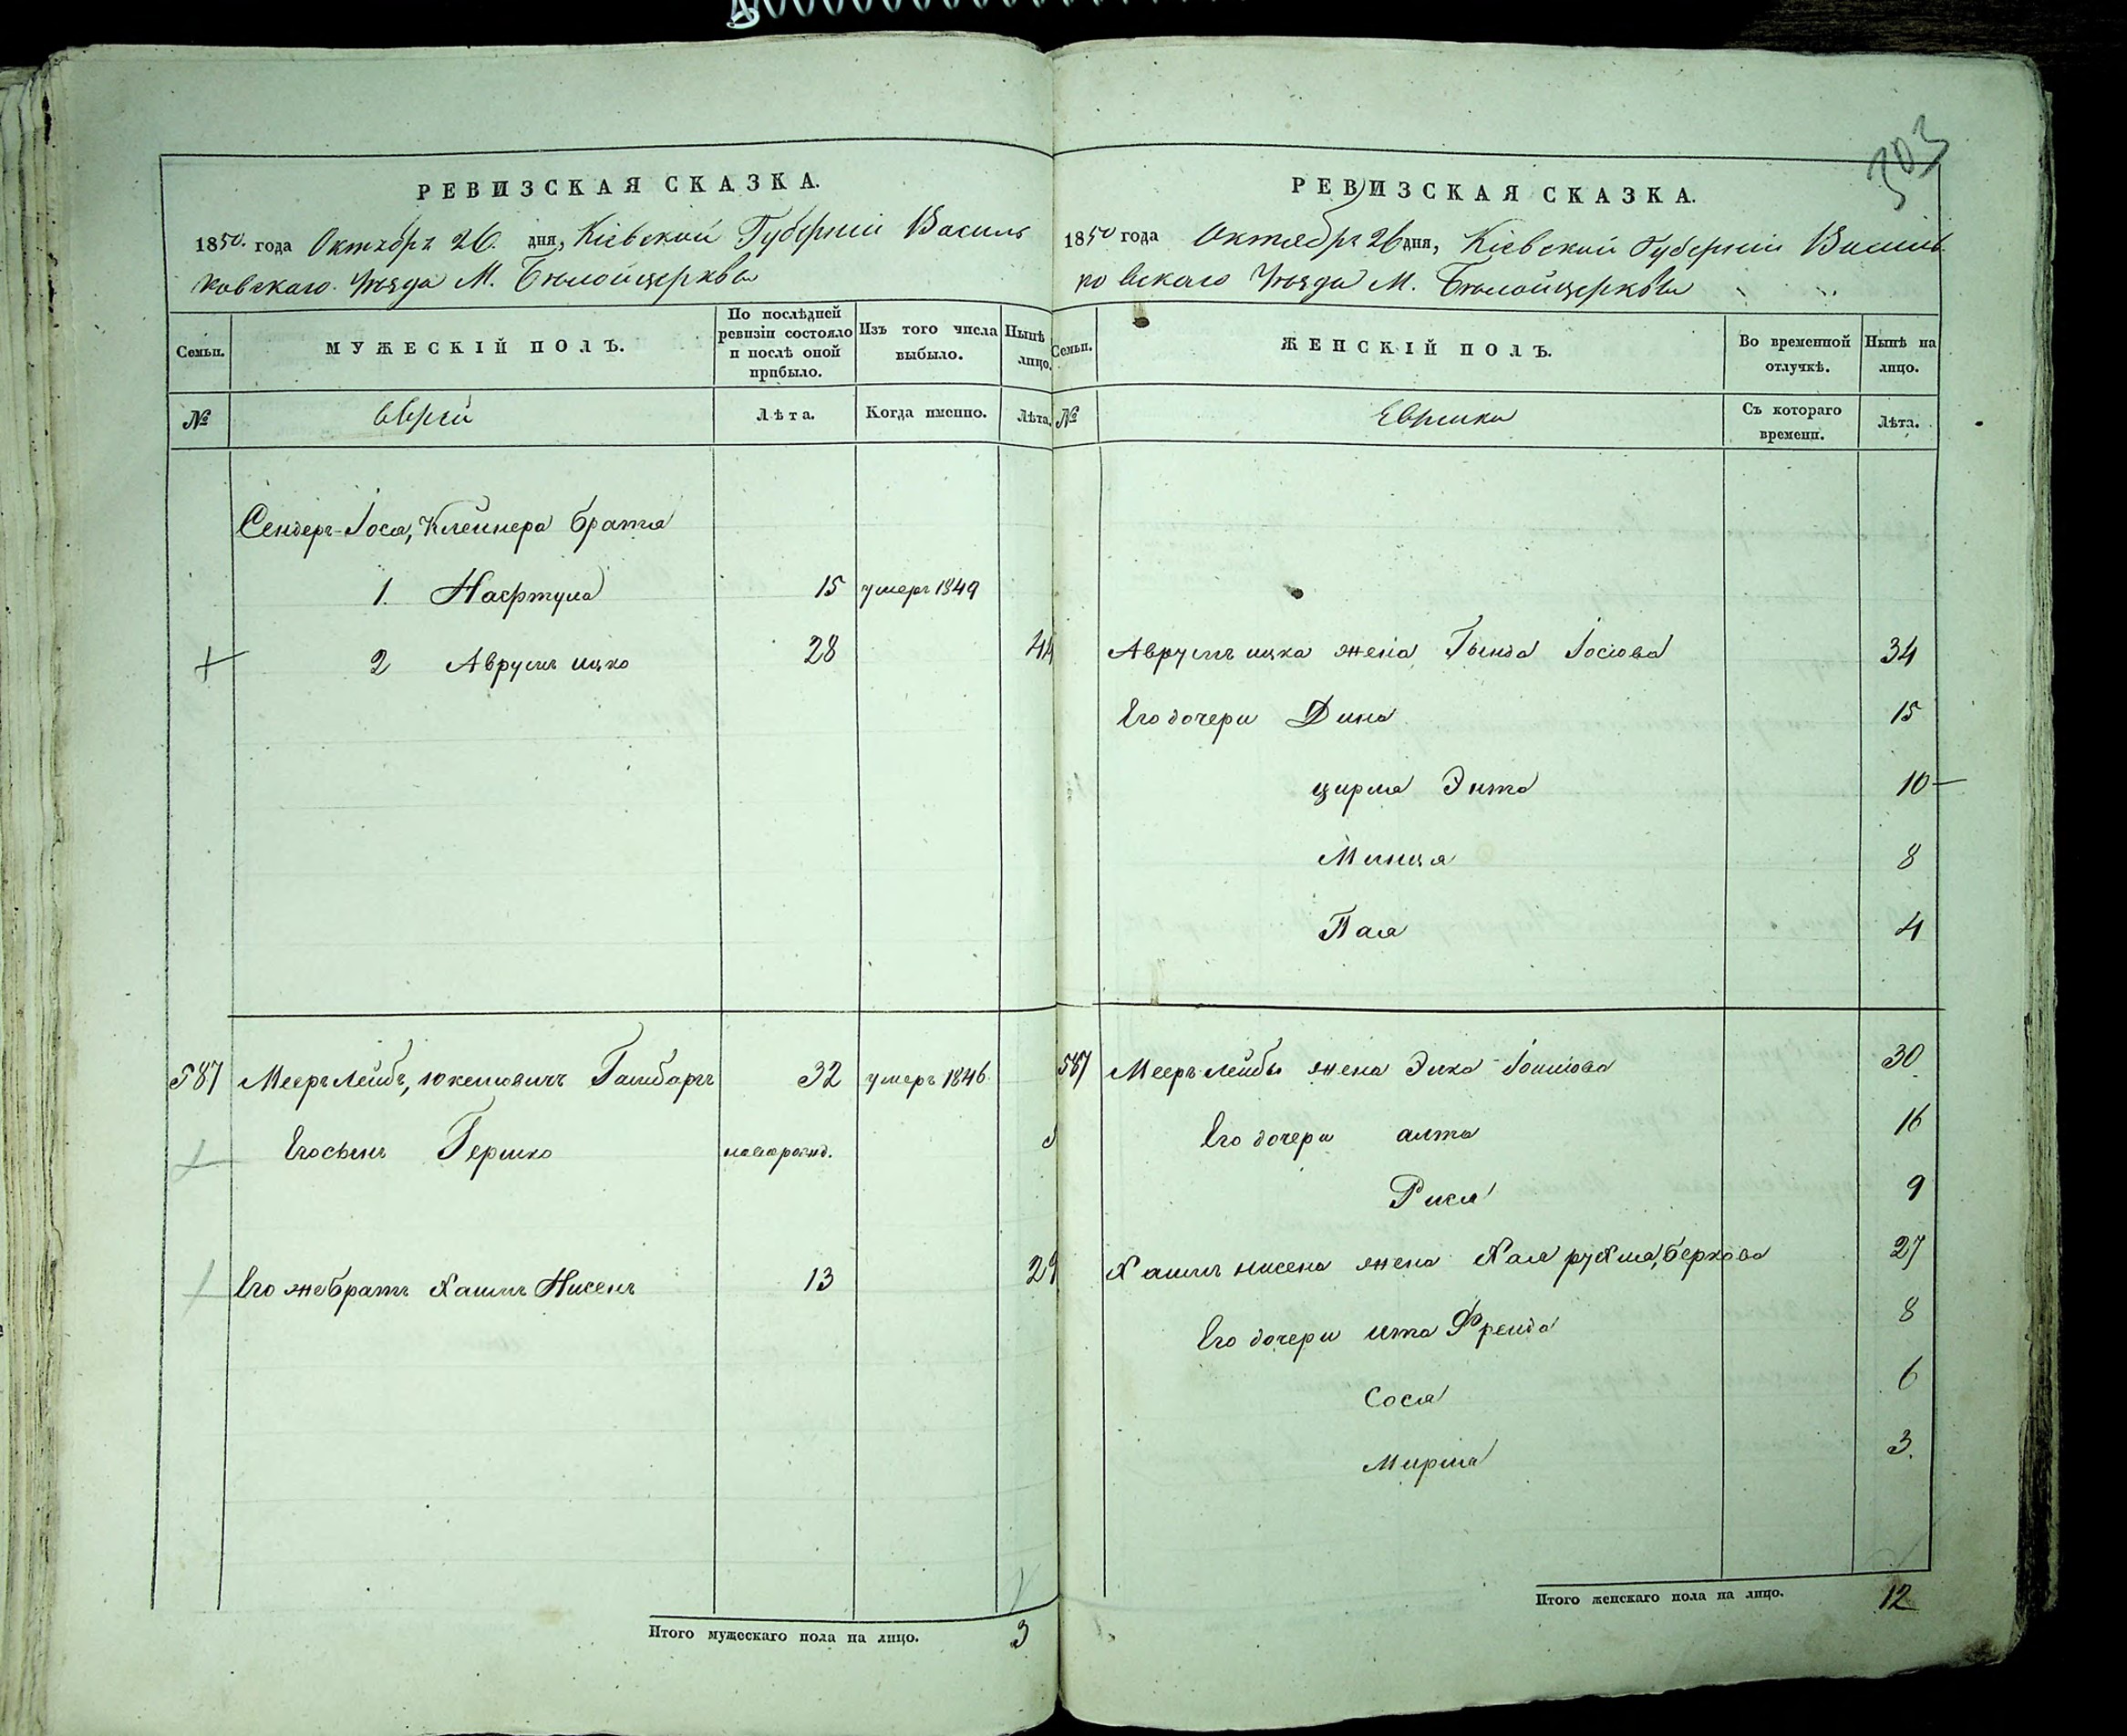 303
РЕВИЗСКАЯ СКАЗКА.
1850. года Октября 26. дня, Кіевской Губерніи Василь
ковскаго Уѣзда М. Бѣлойцеркви
Семьи.
МУЖЕСКІЙ ПОЛЪ.
По послѣдней ревизіи состояло и послѣ оной прибыло.
Изъ того числа выбыло.
Нынѣ лицо.
№
Еврей
Лѣта.
Когда именно.
Лѣта.
Сендеръ-Іося, Клейнера братья
1. Нафтула 15 умеръ 1849
2 Аврумъ ицко 28 44
587 Мееръ Лейбъ, юкелювичъ 32 умеръ 1846
Его сынъ Гершко новорожд.
Его же братъ Хаимъ Нисенъ 13 29
Итого мужескаго пола на лицо. 3
РЕВИЗСКАЯ СКАЗКА.
1850 года Октября 26 дня, Кіевской Губерніи Василь
ковскаго Уѣзда М. Бѣлойцеркви
Семьи.
ЖЕНСКІЙ ПОЛЪ.
Во временной отлучкѣ.
Нынѣ на лицо.
№
Еврейки
Съ котораго времени.
Лѣта.
Аврумъ ицка жена Гинда Іосіова 34
Его дочери Дина 15
цирля Энта 10
Минця 8
Пая 4
587 Мееръ Лейбы жена 30
Его дочери алта 16
Рися 9
Хаимъ нисена жена Хая рухля, Беркова 27
Его дочери ита Фрейда 8
Сося 6
Мирля 3.
Итого женскаго пола на лицо. 12